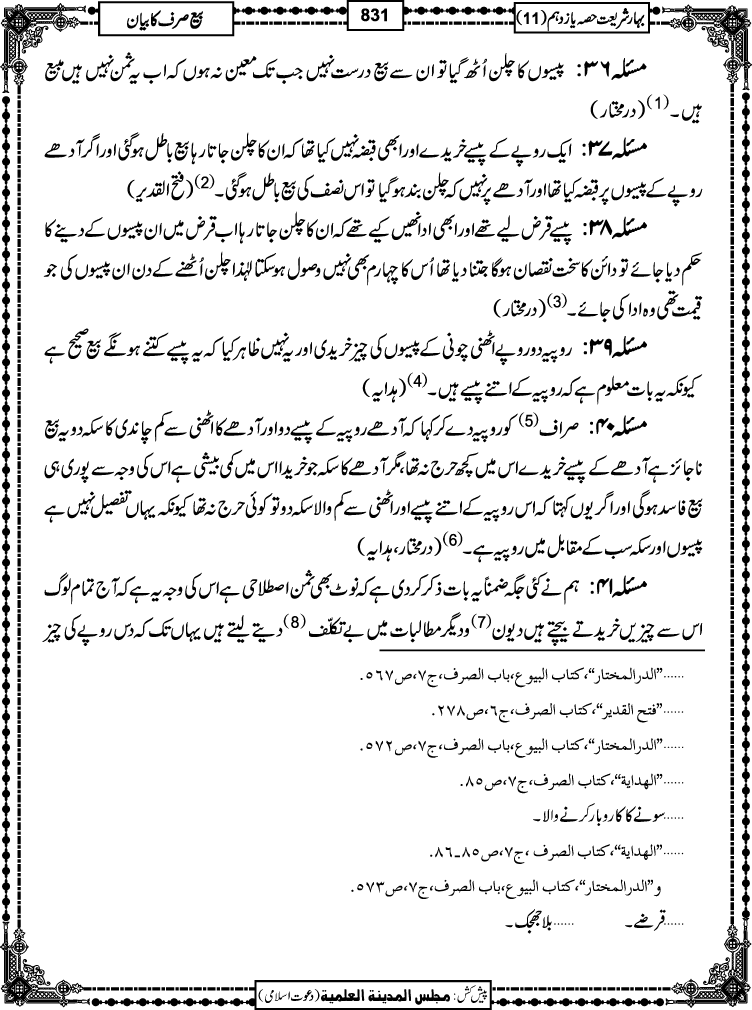 بہارِ شریعت حصہ یازدہم (11)
831
بیع صرف کا بیان
مسئلہ ۳۶: پیسوں کا چلن اُٹھ گیا تو ان سے بیع درست نہیں جب تک معین نہ ہوں کہ اب یہ ثمن نہیں ہیں مبیع
ہیں۔(1) (درمختار)
مسئلہ ۳۷: ایک روپے کے پیسے خریدے اور ابھی قبضہ نہیں کیا تھا کہ ان کا چلن جاتا رہا بیع باطل ہوگئی اور اگر آدھے
روپے کے پیسوں پر قبضہ کیا تھا اور آدھے پر نہیں کہ چلن بند ہوگیا تو اس نصف کی بیع باطل ہوگئی۔(2) (فتح القدیر)
مسئلہ ۳۸: پیسے قرض لیے تھے اور ابھی ادا نہیں کیے تھے کہ ان کا چلن جاتا رہا اب قرض میں ان پیسوں کے دینے کا
حکم دیا جائے تو دائن کا سخت نقصان ہوگا جتنا دیا تھا اُس کا چہارم بھی نہیں وصول ہوسکتا لہٰذا چلن اُٹھنے کے دن ان پیسوں کی جو
قیمت تھی وہ ادا کی جائے۔(3) (درمختار)
مسئلہ ۳۹: روپیہ دو روپے اٹھنی چونی کے پیسوں کی چیز خریدی اور یہ نہیں ظاہر کیا کہ یہ پیسے کتنے ہونگے بیع صحیح ہے
کیونکہ یہ بات معلوم ہے کہ روپیہ کے اتنے پیسے ہیں۔(4) (ہدایہ)
مسئلہ ۴۰: صراف(5) کو روپیہ دے کر کہا کہ آدھے روپیہ کے پیسے دو اور آدھے کا اٹھنی سے کم چاندی کا سکہ دو یہ بیع
ناجائز ہے آدھے کے پیسے خریدے اس میں کچھ حرج نہ تھا، مگر آدھے کا سکہ جو خریدا اس میں کمی بیشی ہے اس کی وجہ سے پوری ہی
بیع فاسد ہوگی اور اگر یوں کہتا کہ اس روپیہ کے اتنے پیسے اور اٹھنی سے کم والا سکہ دو تو کوئی حرج نہ تھا کیونکہ یہاں تفصیل نہیں ہے
پیسوں اور سکہ سب کے مقابل میں روپیہ ہے۔(6) (درمختار، ہدایہ)
مسئلہ ۴۱: ہم نے کئی جگہ ضمناً یہ بات ذکر کردی ہے کہ نوٹ بھی ثمن اصطلاحی ہے اس کی وجہ یہ ہے کہ آج تمام لوگ
اس سے چیزیں خریدتے بیچتے ہیں دیون(7) و دیگر مطالبات میں بے تکلّف(8) دیتے لیتے ہیں یہاں تک کہ دس روپے کی چیز
......”الدرالمختار“،کتاب البیوع،باب الصرف،ج٧،ص٥٦٧.
......”فتح القدیر“،کتاب الصرف،ج٦،ص٢٧٨.
......”الدرالمختار“،کتاب البیوع،باب الصرف،ج٧،ص٥٧٢.
......”الھدایة“،کتاب الصرف،ج٧،ص٨٥.
......سونے کا کاروبار کرنے والا۔
......”الھدایة“،کتاب الصرف ،ج٧،ص٨٥۔٨٦.
و ”الدرالمختار“،کتاب البیوع،باب الصرف،ج٧،ص٥٧٣.
......قرضے۔ ......بلا جھجک۔
پیش کش: مجلس المدینة العلمیة (دعوت اسلامی)